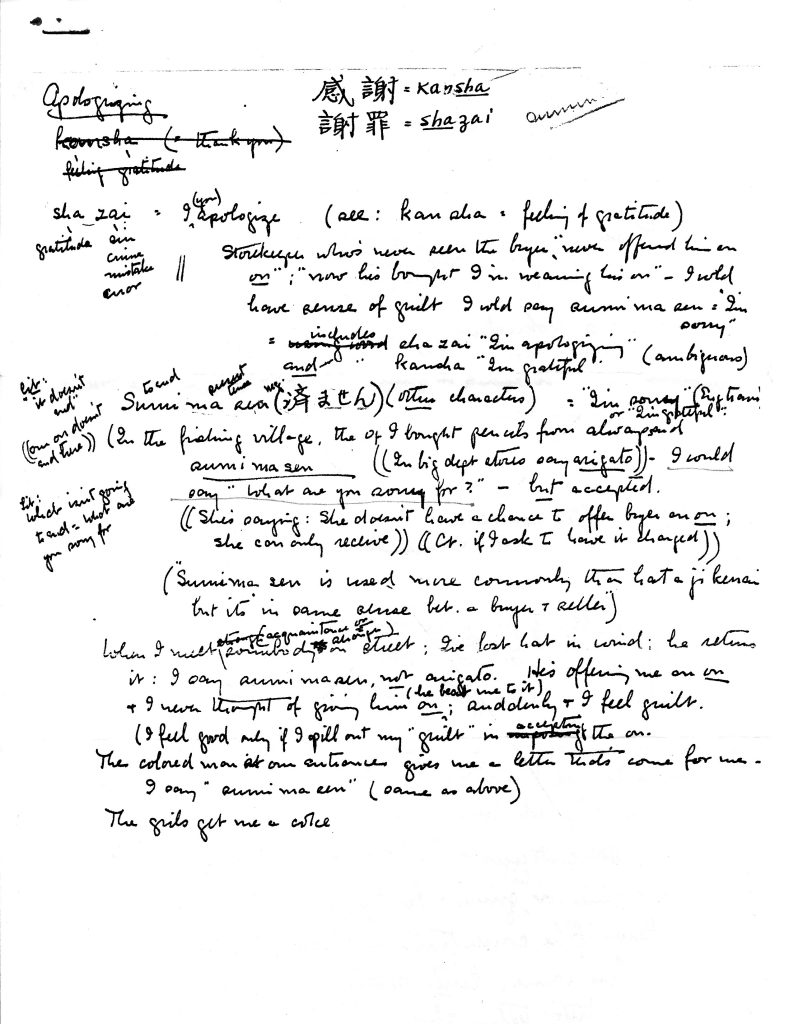 Apologizing
感謝 = kansha
謝罪 = shazai
kansha (= thank you)
feeling gratitude
sha zai = I (you) apologize (see: kansha = feeling of gratitude)
gratitude sin
crime
mistake
error
Storekeeper who's never seen the buyer, "never offered him an
on"; "now he's bought I'm wearing his on" – I wld
have sense of guilt I wld say sumimasen = "I'm
sorry"
= includes shazai "I'm apologizing"
and " kansha "I'm grateful" (ambiguous)
lit:
"it doesn't
end"
((our on doesn't
end here))
to end present tense neg.
Sumimasen (済ません) (other characters) = "I'm sorry" (Eng trans
or "I'm grateful".
(In the fishing village, the I bought pencils from always said
sumimasen ((In big dept stores say arigato)) – I would
say "What are you sorry for?" – but accepted.
Lit:
What isn't going
to end = what are
you sorry for
((She's saying: She doesn't have a chance to offer buyer an on;
she can only receive)) ((Cf. if I ask to have it charged))
("Sumimasen is used more commonly than katajikenai
but it's in same sense bet. a buyer + seller")
When I meet somebody (acquaintance or stranger) on street; I've lost hat in wind; he returns
it: I say sumimasen, not arigato. He's offering me an on
+ I never thought of giving him on; (he beat me to it) suddenly + I feel guilt.
(I feel good only if I spill out my "guilt" in accepting the on.
The colored man at our entrance gives me a letter that's come for me –
I say "sumimasen" (same as above)
The girls get me a coke